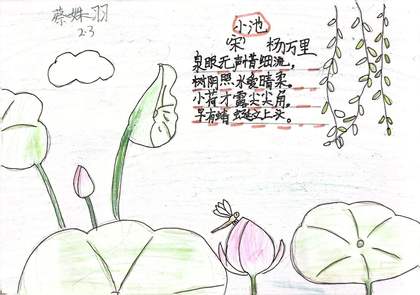 蔡姝羽
2.3
小池
宋 杨万里
泉眼无声惜细流，
树阴照水爱晴柔。
小荷才露尖尖角，
早有蜻蜓立上头。